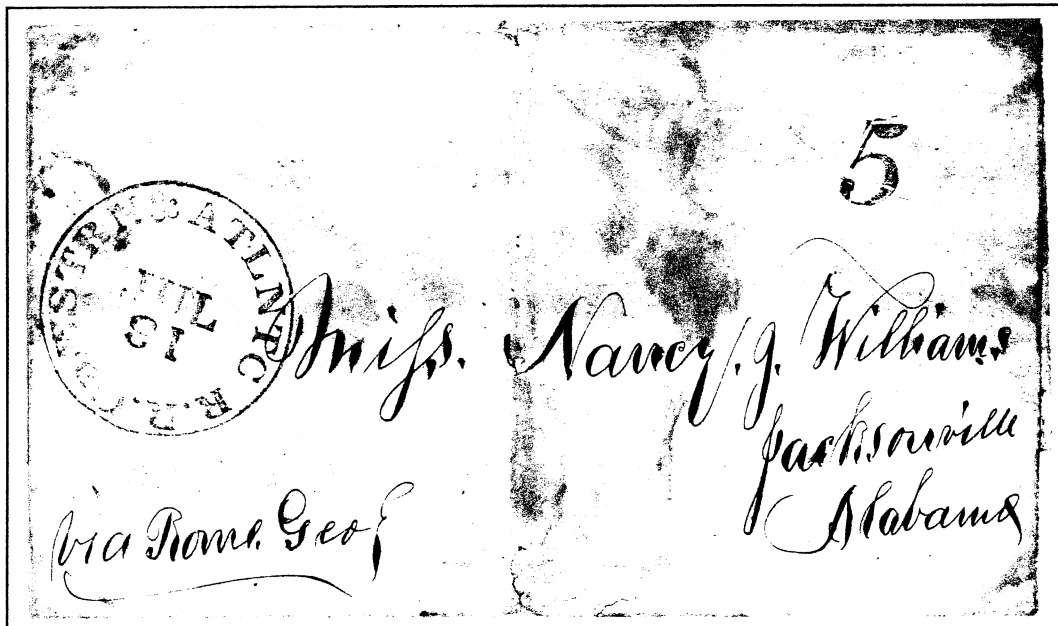 5
WESTRN & ATLNTC R.R.
JUL
13
Miss. Nancy J. Williams
Jacksonville
Alabama
via Rome. Geo